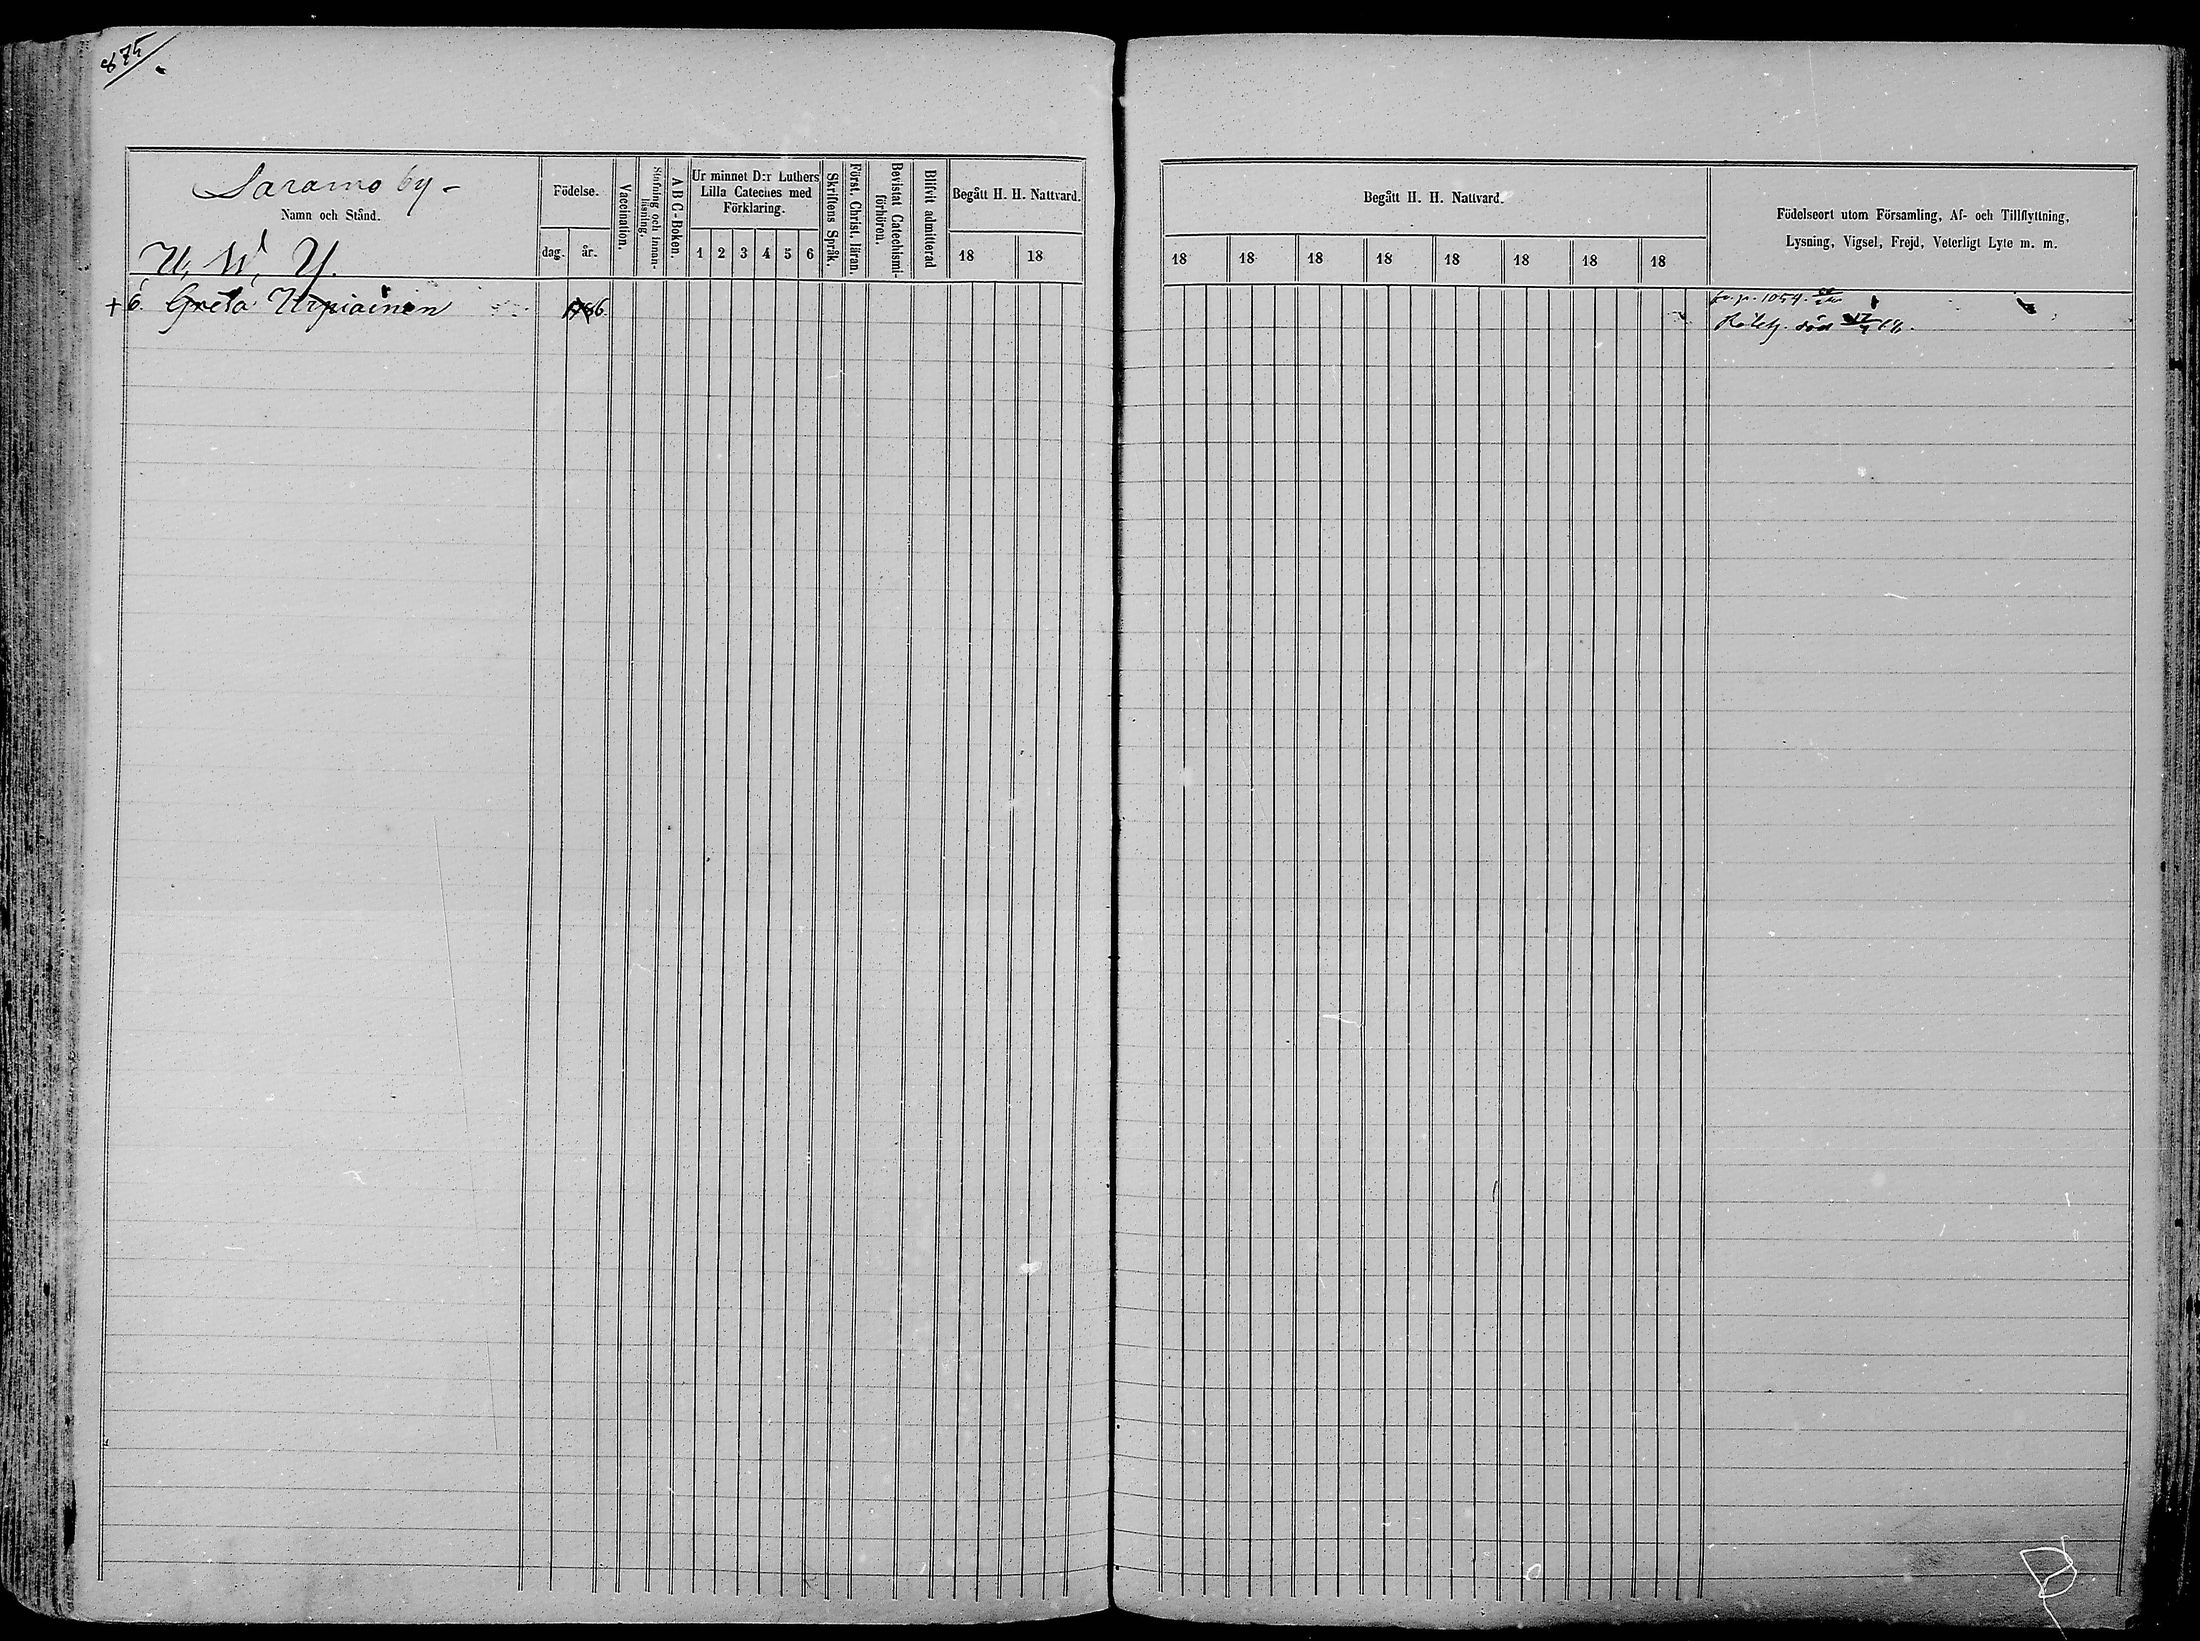 875
Saramo by -
Namn och Stånd.
U, W, Y.
Födelse.
dag. år.
Vaccination.
Stafning och innan-
läsning.
A B C-Boken.
Ur minnet D:r Luthers
Lilla Cateches med
Förklaring.
1 2 3 4 5 6
Skriftens Språk.
Först. Christ. läran.
Bevistat Catechismi-
förhören.
Blifvit admitterad
Begått H. H. Nattvard.
18 18
Begått H. H. Nattvard.
18 18 18 18 18 18 18 18
Födelseort utom Församling, Af- och Tillflyttning,
Lysning, Vigsel, Frejd, Veterligt Lyte m. m.
+ 6. Greta Urpiainen 1786
p. 1054.
död 17